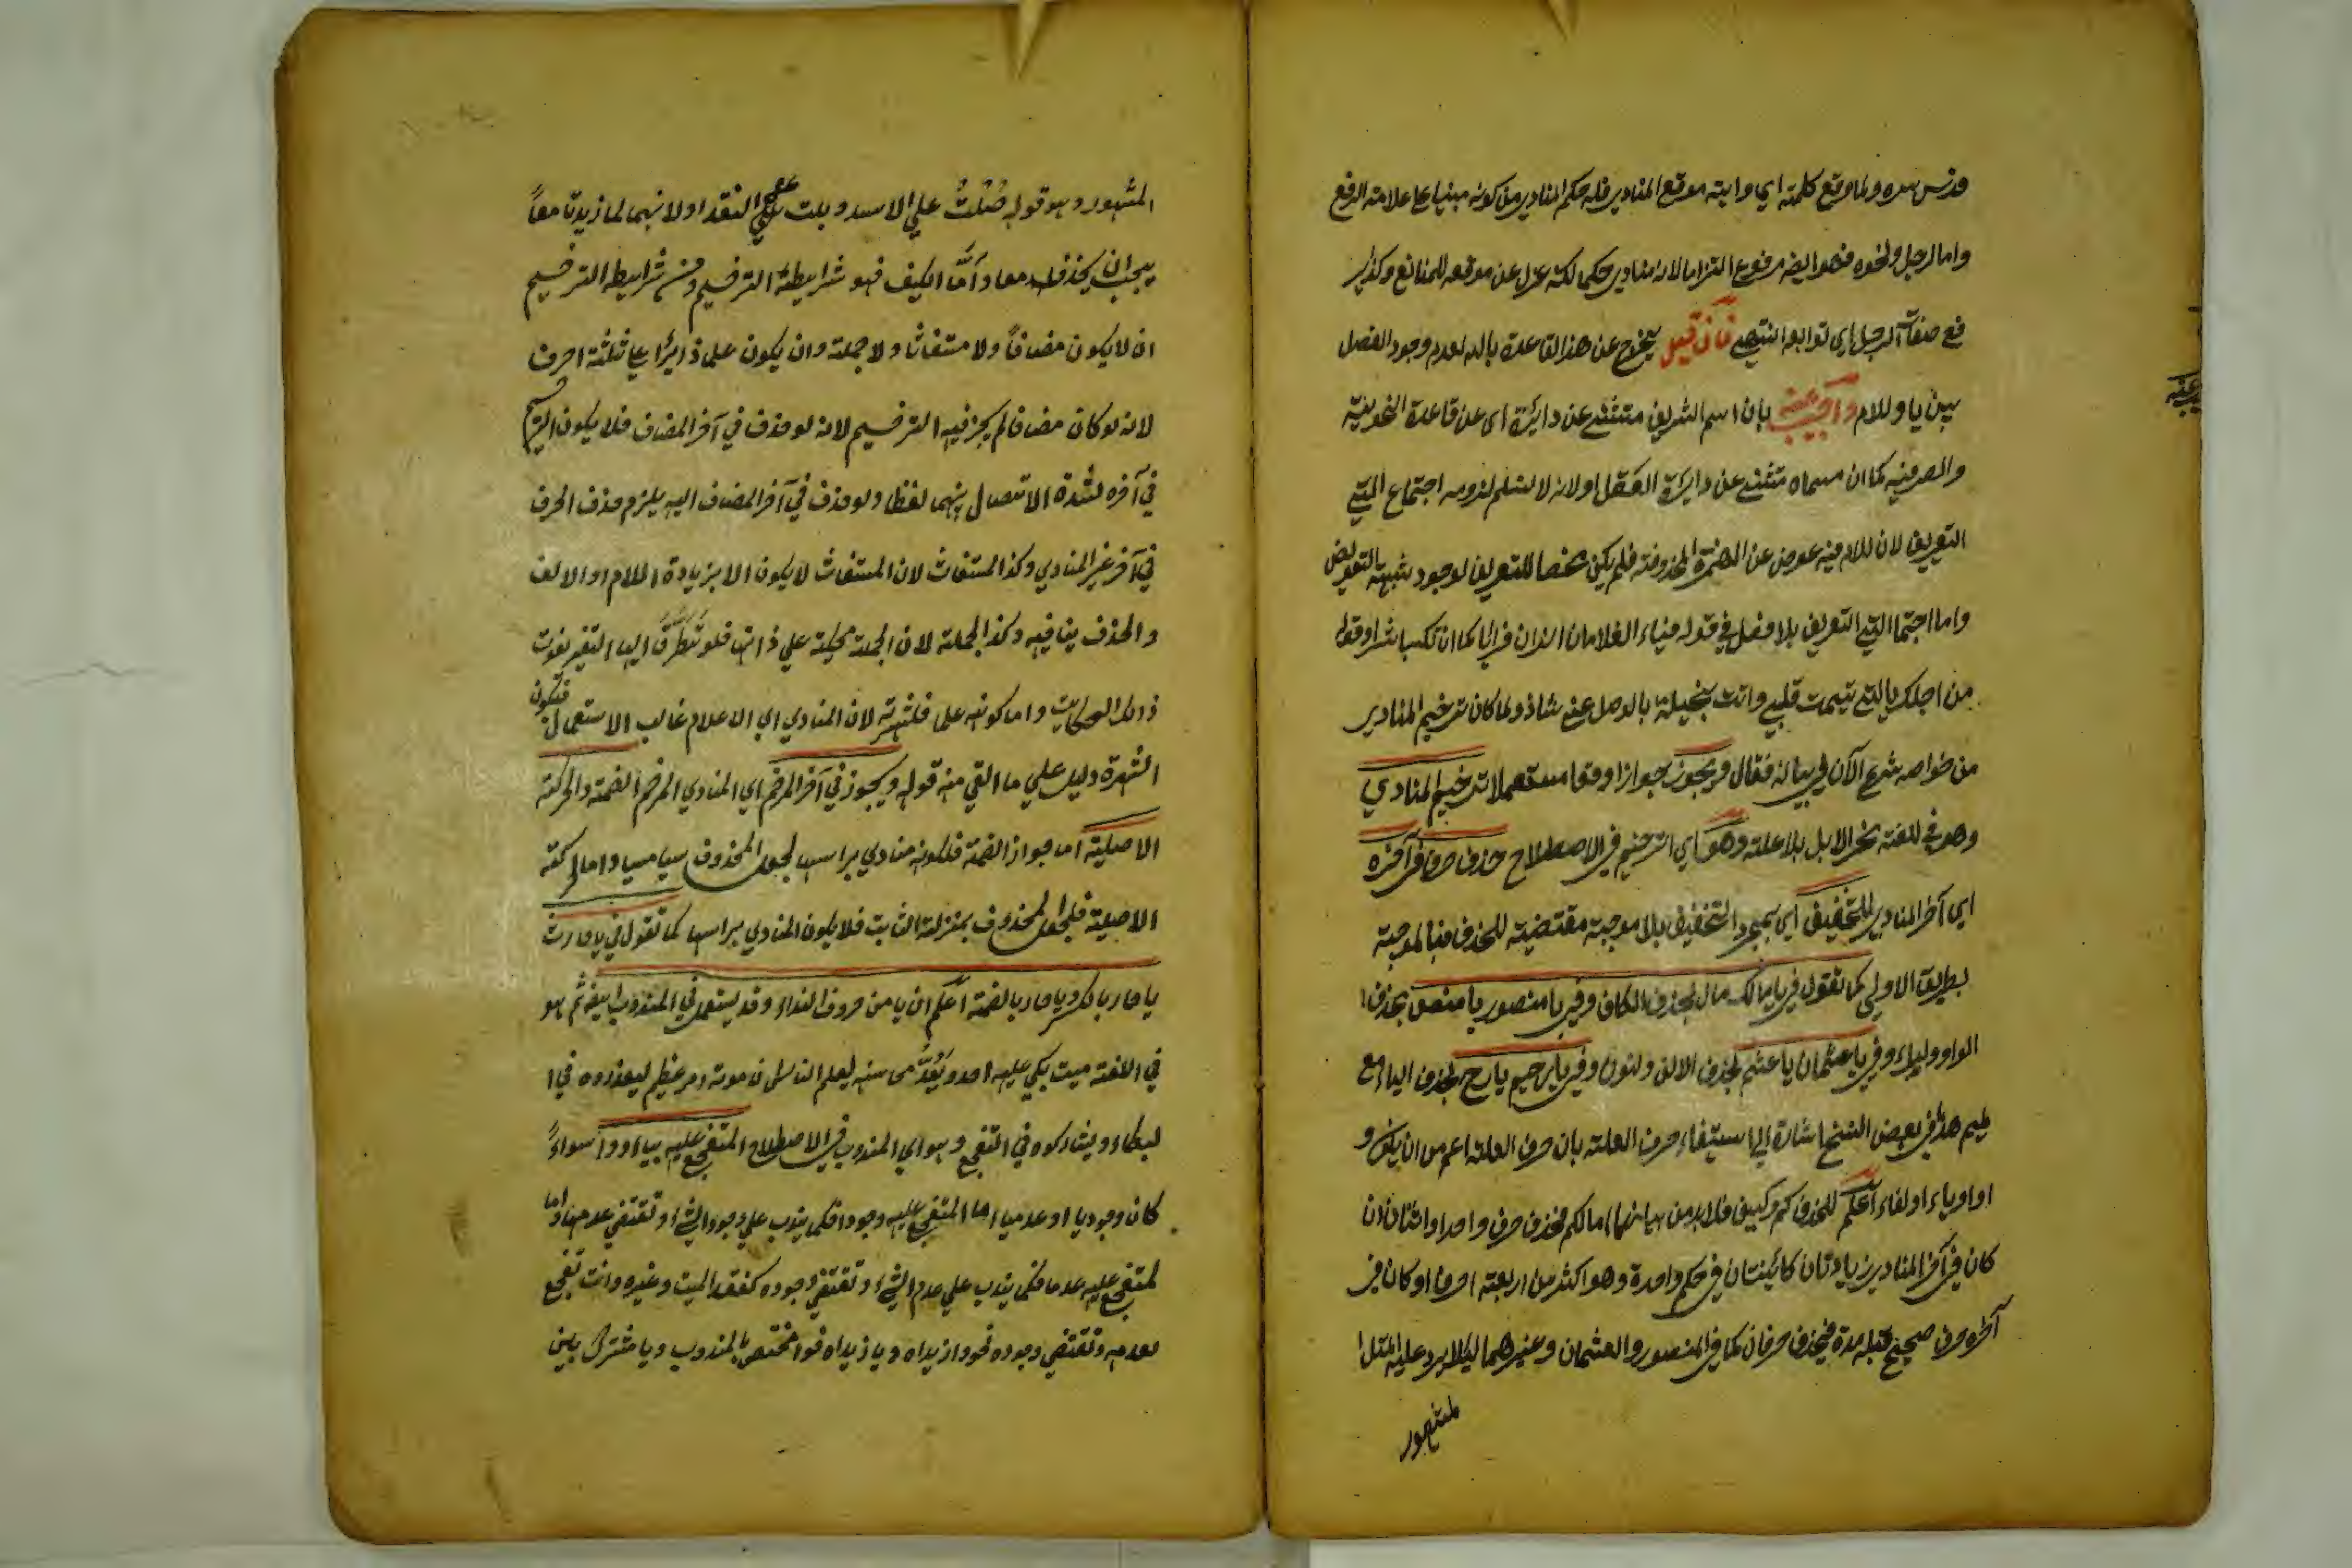 ولما وقع كلمة اي وايته موقع المنادي فله حكم المنادي من كونه مبنيا علي علامة الرفع
واما الرجل ونحوه فهو ايضا مرفوع التزاما لانه منادي حكما لكنه عزل عن موقعه للمانع وكذا
رفع صفات الرجل اي توابعه فان قيل يخرج عن هذا القاعدة يا الله لعدم وجود الفصل
بين يا واللام واجيب عنه بان اسم الشريف مستثني عن دايرة اي عن قاعدة النحوية
والصرفية كما ان مسماه مستثني عن دايرة العقل اولانه لا نسلم لزوم اجتماع التي
التعريف لان اللام فيه عوض عن الهمزة المحذوفة فلم يكن مختصا للتعريف لوجود شبهة بالتعويض
واما اجتماع التي التعريف بلا فصل في قوله فياء الغلامان اللذان فرا ايا كما ان تكسبا شرا وقوله
من اجلك يا التي تيمت قلبي وانت بخيلة بالوصل عني شاذ ولما كان ترخيم المنادي
من خواصه شرع الآن في بيانه فقال ويجوز جوازا وقوعا مستعملا ترخيم المنادي
وهو في اللغة نحر الابل بلا علة وهو اي الترخيم في الاصطلاح حذف حرف في آخره
اي آخر المنادي للتخفيف اي بمجرد التخفيف بلا موجبة مقتضية للحذف فبالموجبة
بطريق الاولي كما تقول في يا مالك يا مال بحذف الكاف وفي يا منصور يا منص بحذف
الواو والراء وفي يا عثمان يا عثم بحذف الالف والنون وفي يا رحيم يا رح بحذف الياء مع
الميم هذا في بعض النسخ اشارة الي استيفاء حرف العلة بان حرف العلة اعم من ان يكون و
او او ياء او الفاء اعلم للحذف كم وكيف فلا بد من بيانهما اما الكم فحذف حرف واحد او اثنان ان
كان في آخر المنادي زيادتان كائنتان في حكم واحدة وهو اكثر من اربعة احرف او كان في
آخره حرف صحيح قبله مدة فيحذف حرفان كما في المنصور والعثمان وغيرهما ليلا يرد عليه المثل
المشهور
المشهور وهو قوله صُلْتُ علي الاسد وبلت عن النقد اولانهما لما زيدتا معاً
يجب ان يحذف معا وامّا الكيف فهو شرايطة الترخيم ومن شرايطه الترخيم
ان لا يكون مضافاً ولا مستغاثا ولا جملة وان يكون علما زائدا علي ثلثة احرف
لانه لو كان مضافا لم يجز فيه الترخيم لانه لو حذف في آخر المضاف فلا يكون الترخيم
في آخره لشدة الاتصال بينهما لفظا ولو حذف في آخر المضاف اليه يلزم حذف الحرف
في آخر غير المنادي وكذا المستغاث لان المستغاث لا يكون الا بزيادة اللام او الالف
والحذف ينافيه وكذا الجملة لان الجملة محكية علي ذاتها فلو تَطَرَّقَ اليها التغير يفوت
ذالك الحكايت واما كونه علما فلشهرته لان المنادي اي الاعلام غالب الاستعمال فتكون
الشهرة دليل علي ما القي منه قوله ويجوز في آخر المرخم اي المنادي المرخم الضمة والحركة
الاصلية اما جواز الضمة فلكونه منادي براسها لجعل المحذوف نسيا منسيا واما الحركة
الاصلية فلجعل المحذوف بمنزلة الثابت فلا يكون المنادي براسها كما تقول في يا حارث
يا حار بالكسر ويا حار بالضمة اعلم ان يا من حروف النداء وقد يستعمل في المندوب ايضا ثم هو
في اللغة ميت يبكي عليه احد ويَعُدُّ محاسنه ليعلم الناس ان موته امر عظيم ليعذروه في ا
لبكاء ويشاركوه في التفجع وهو اي المندوب في الاصطلاح المتفجع عليه بيا او وا سواءً
كان وجوديا او عدميا اما المتفجع عليه وجودا فكما يندب علي وجود الشئ او تقتضي عدمها واما
لمتفجع عليه عدما فكما يندب علي عدم الشئ او تقتضي وجوده كفقد الميت وغيره وانت تفجع
بعدمه وتقتضي وجوده نحو وازيداه ويا زيداه فوا مختص بالمندوب ويا مشترك بين